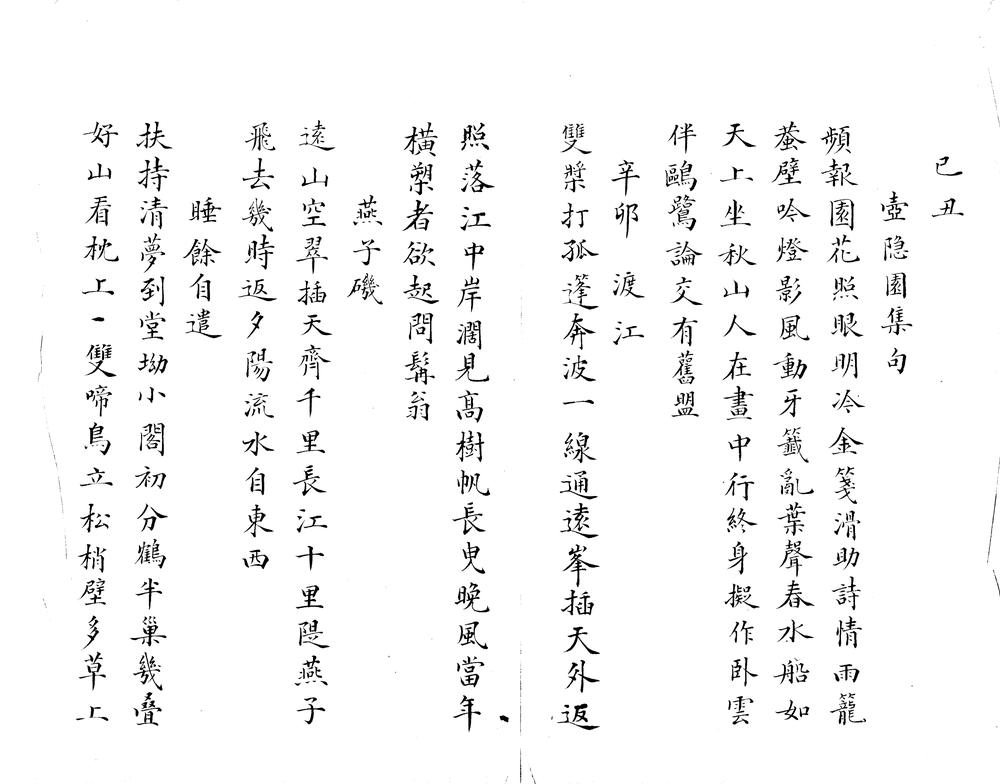 己丑
壺隐園集句
頻報園花照眼明冷金箋滑助詩情雨籠
蛬壁吟燈影風動牙籤亂葉聲春水船如
天上坐秋山人在畫中行終身擬作卧雲
伴鷗鷺論交有舊盟
辛卯渡江
雙槳打孤篷奔波一線通遠峯插天外返
照落江中岸濶見高樹帆長曳晚風當年
橫槊者欲起問髯翁
燕子磯
遠山空翠插天齊千里長江十里隄燕子
飛去幾時返夕陽流水自東西
睡餘自遣
扶持清夢到堂坳小閣初分鶴半巢幾疊
好山看枕上一雙啼鳥立松梢壁多草上